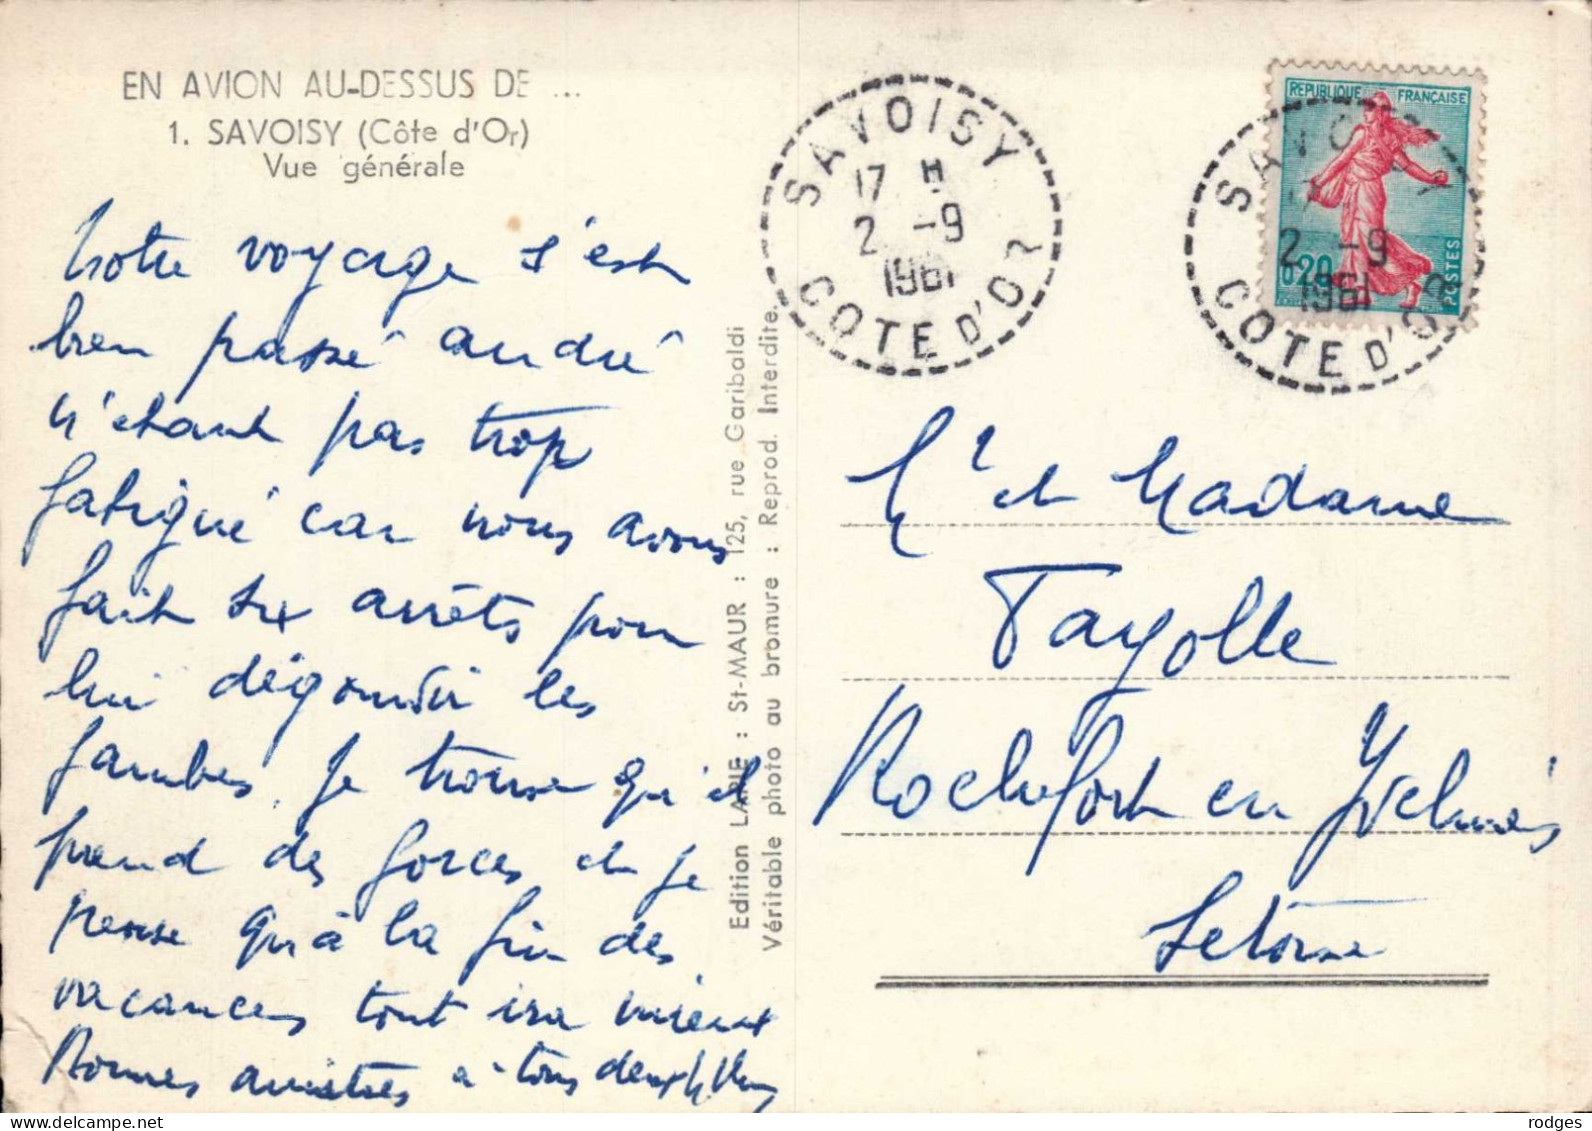 EN AVION AU-DESSUS DE ...
1. SAVOISY (Côte d'Or)
Vue générale
Notre voyage s'est
bien passé andré
n'étant pas trop
fatigué car nous avons
fait six arrêts pour
lui dégourdir les
jambes. je trouve qu'il
prend des forces et je
pense qu'à la fin des
vacances tout ira mieux
Bonnes amitiés à tous deux
Edition LAPIE : St-MAUR : 125, rue Garibaldi
Véritable photo au bromure : Reprod. Interdite.
SAVOISY
17 H
2 -9
1961
COTE D'OR
REPUBLIQUE FRANÇAISE
0,20
POSTES
SAVOISY
2 -9
1961
COTE D'OR
Mr et Madame
Fayolle
Rochefort en Yvelines
Set Oise
rodges